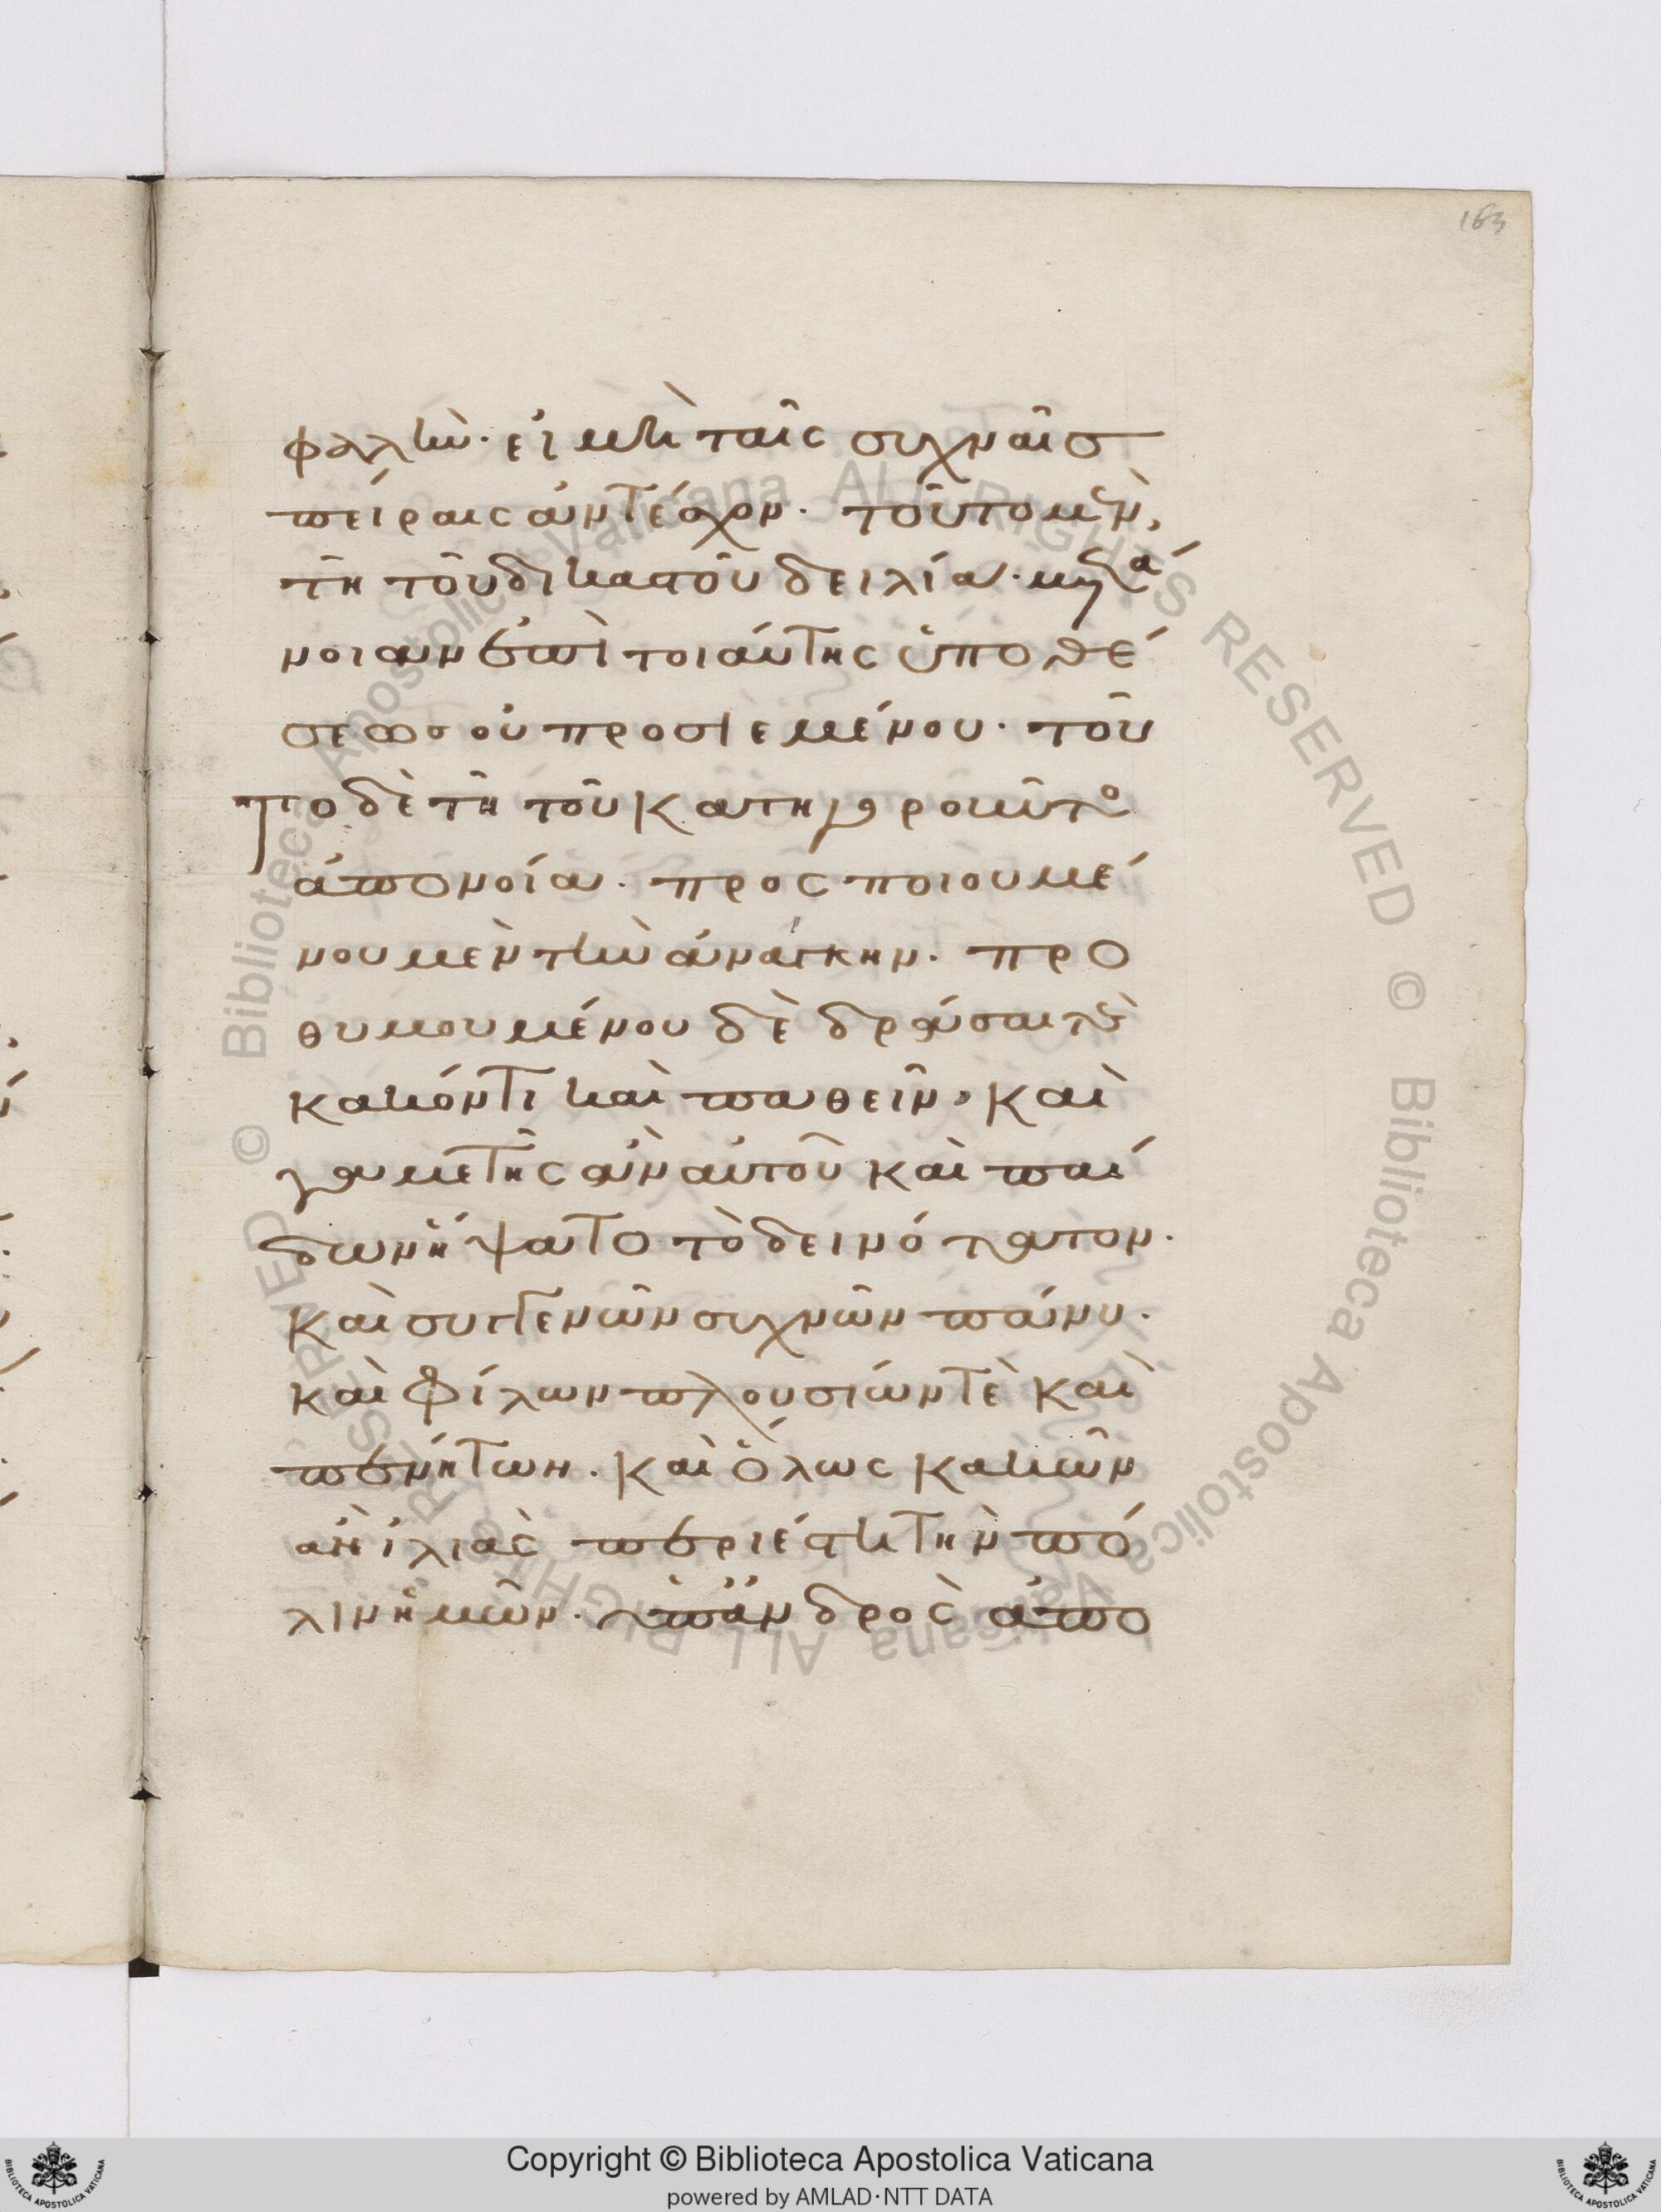 163
φαλὴν· εἰ μὴ ταῖς συχναῖσ
πείραις ἀντέσχον. τοῦτο μὲν,
τῆ τοῦ δικαστοῦ δειλία· μετά
νοιαν ἐπὶ τοιαύτης ὑποθέ
σεωσ οὐ προσιεμένου· τοῦ
το δὲ τῆ τοῦ κατηγοροῦντο
ἀπονοία. προς ποιουμέ
νου μὲν τὴν ἀνάγκην. προ
θυμουμένου δὲ δράσαι τὸ
κακόν τι καὶ παθεῖν, καὶ
γαμετῆς ἂν αὐτοῦ καὶ παί
δων ἥψατο τὸ δεινότατον.
καὶ συγγενῶν συχνῶν πάνυ.
καὶ φίλων πλουσίων τὲ καὶ
πενήτων. καὶ ὅλως κακῶν
ἂν ἰλιὰς περιέστη τὴν πό
λιν ἡμῶν. ὑπ' ἀνδρὸς ἀπο
Copyright © Biblioteca Apostolica Vaticana
powered by AMLAD·NTT DATA